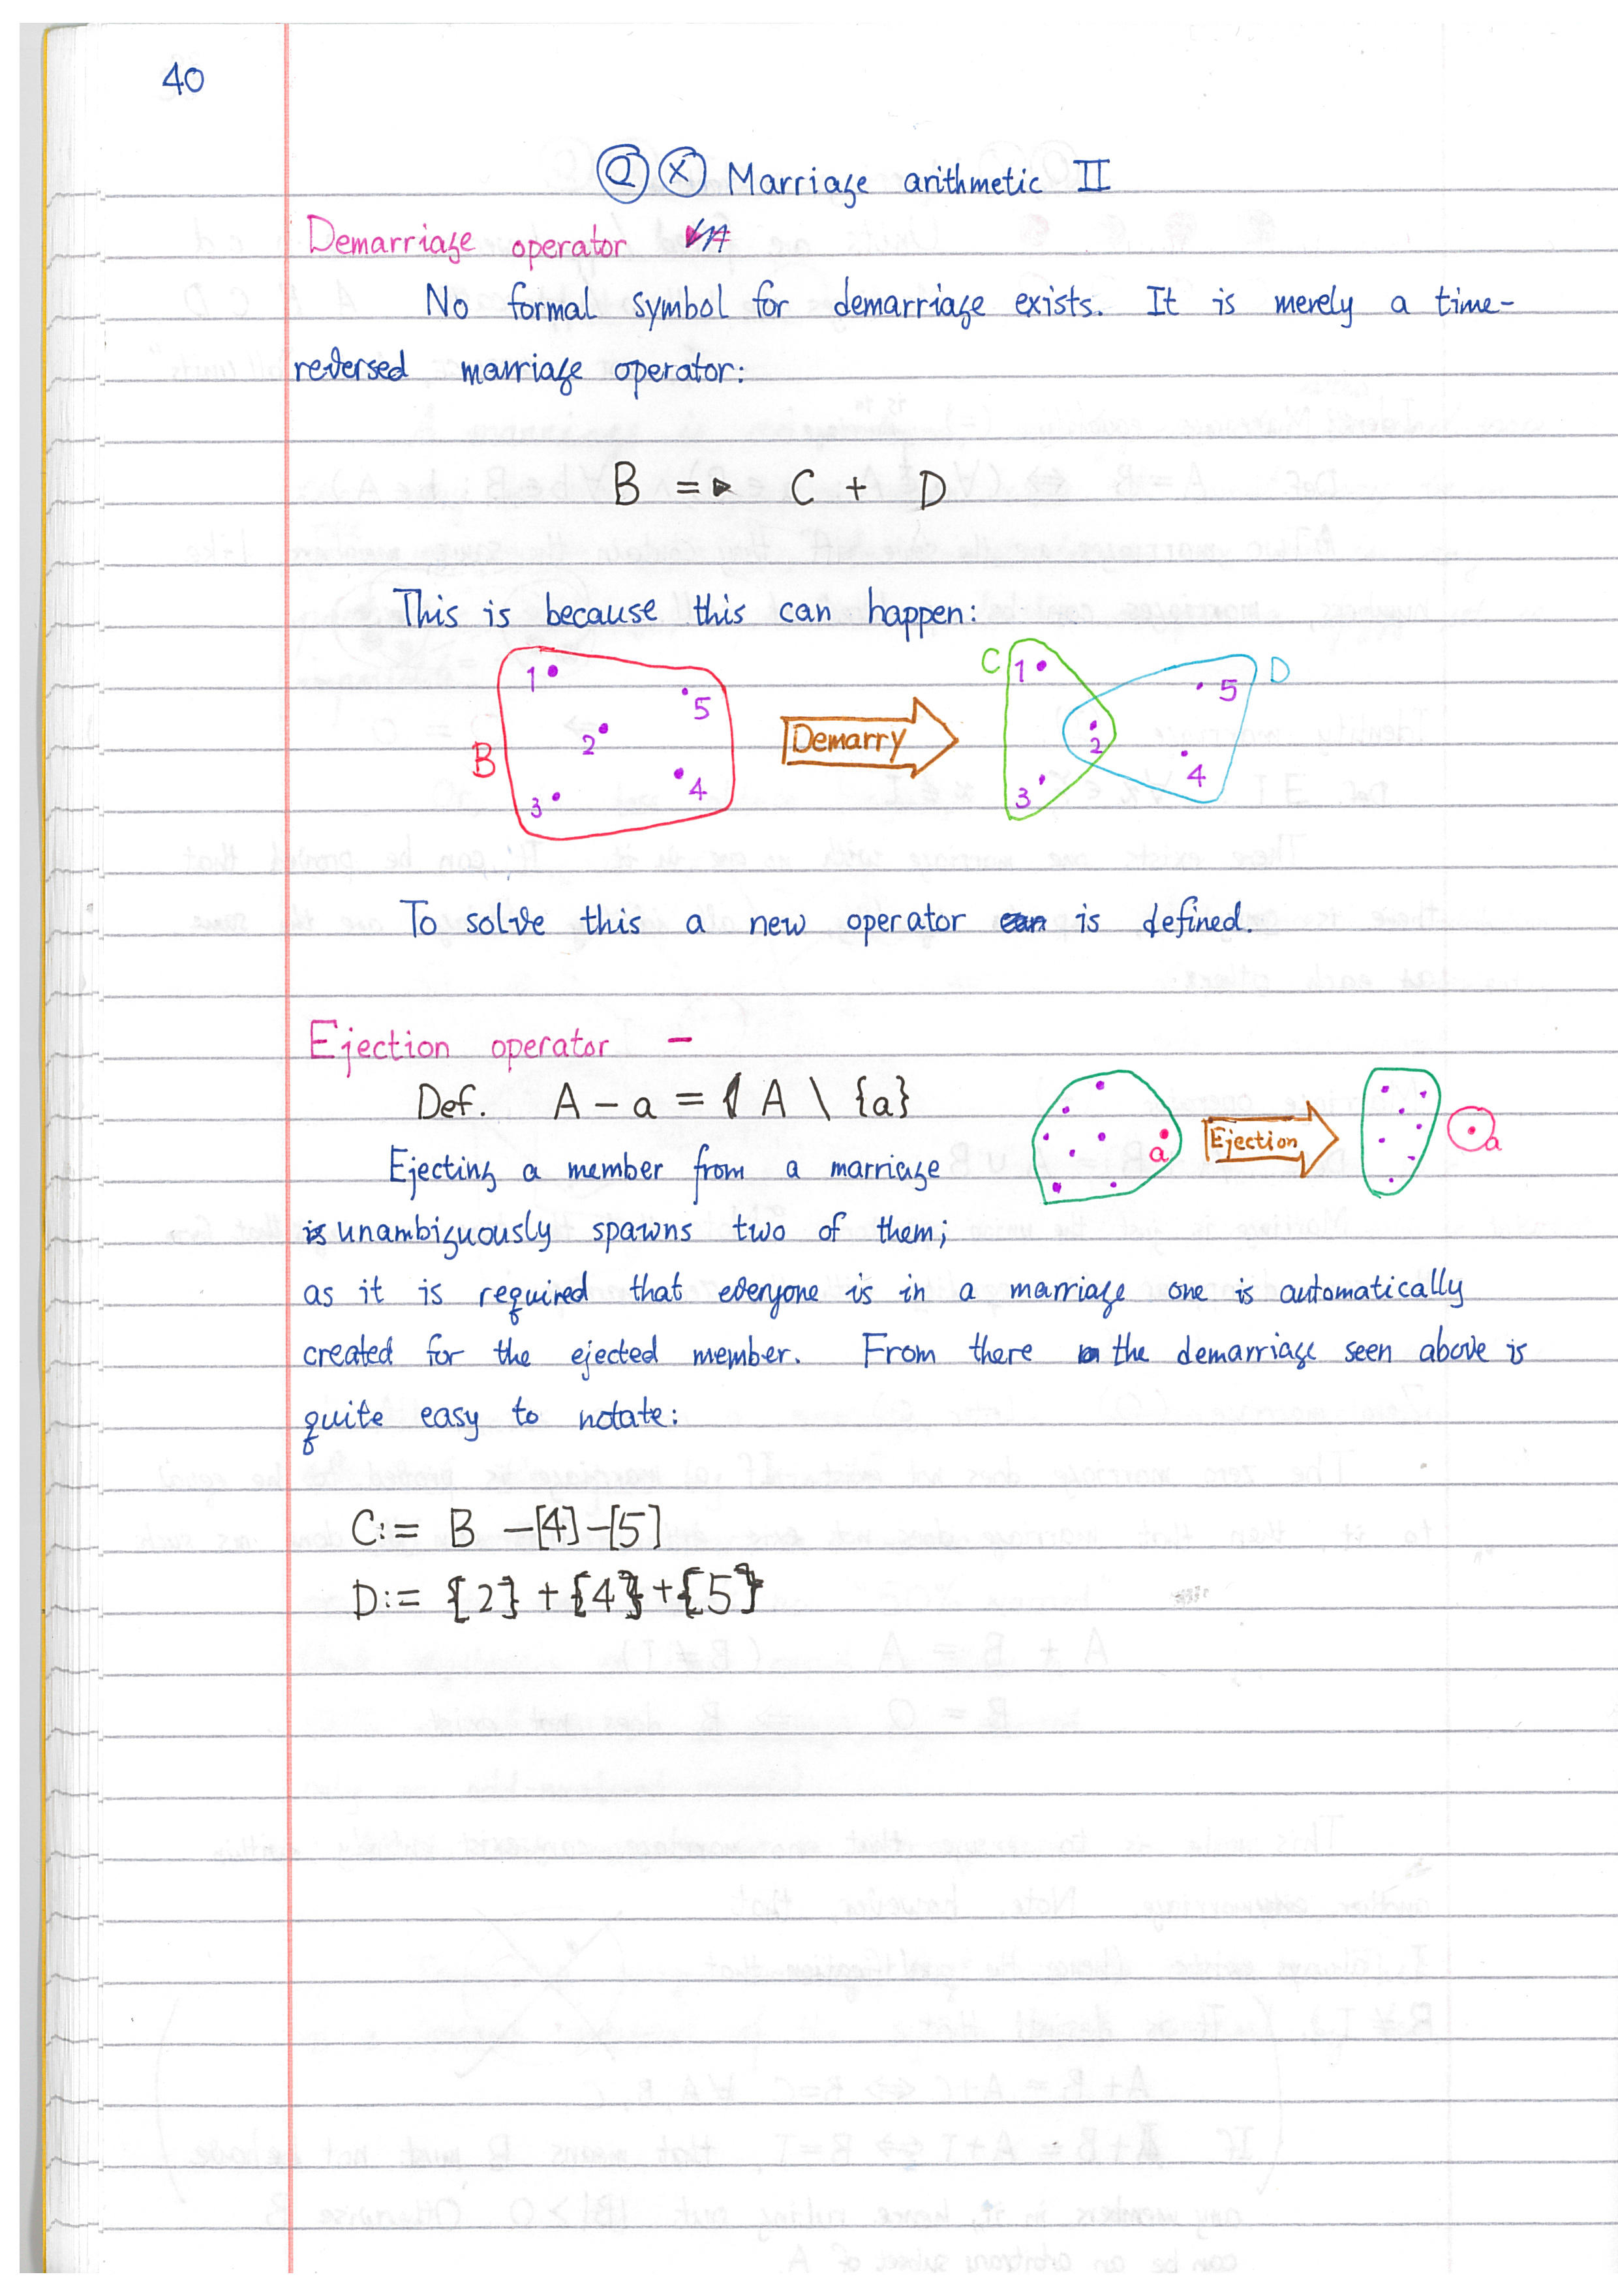 40
Q X Marriage arithmetic II
Demarriage operator
No formal symbol for demarriage exists. It is merely a time-
reversed marriage operator:
B => C + D
This is because this can happen:
B 1 2 3 4 5
Demarry
C 1 2 3 D 5 4
To solve this a new operator is defined.
Ejection operator -
Def. A - a = A \ {a}
a Ejection a
Ejecting a member from a marriage
unambiguously spawns two of them;
as it is required that everyone is in a marriage one is automatically
created for the ejected member. From there the demarriage seen above is
quite easy to notate:
C:= B -[4]-[5]
D:= {2} + {4} + {5}